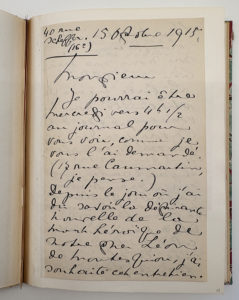 40 rue
Scheffer. 15 Octobre 1915.
(16e)
Monsieur
Je pourrai être
mercredi vers 4h 1/2
au journal pour
vous voir, comme je
vous l'ai demandé.
(17 rue Caumartin,
je pense.)
Depuis le jour où j'ai
su la
nouvelle de la
mort héroïque de
notre cher Léon
de Montesquiou, j'ai
souhaité cet entretien.